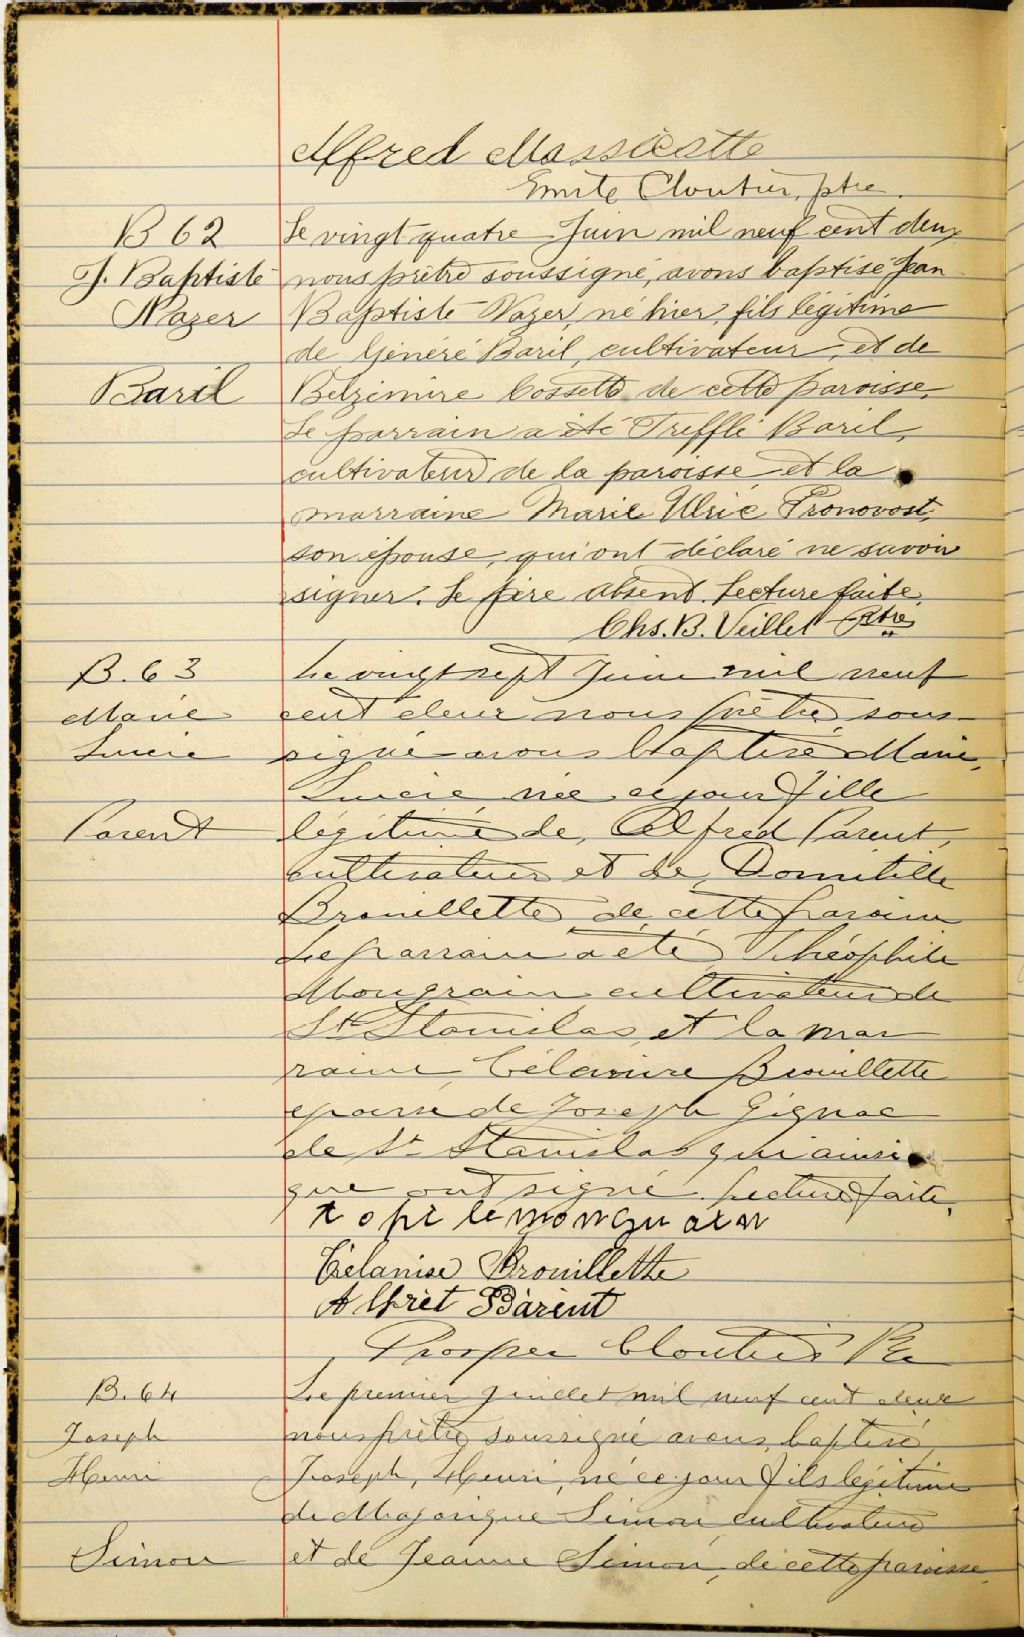 Alfred Massicotte
Emile Cloutier, ptre.
B 62
Le vingt quatre Juin mil neuf cent deux
J. Baptiste
nous prêtre soussigné, avons baptisé Jean
Nazer
Baptiste Nazer, né hier, fils légitime
de Généré Baril, cultivateur, et de
Baril
Belzimire Cossette de cette paroisse.
Le parrain a été Trefflé Baril,
cultivateur de la paroisse et la
marraine Marie Ulric Pronovost,
son épouse, qui ont déclaré ne savoir
signer. Le père absent. Lecture faite.
Chs. B. Veillet Ptre
B. 63
Le vingt sept Juin mil neuf
Marie
cent deux nous prêtre sous-
Lucie
signé avons baptisé Marie,
Lucie, née ce jour fille
Parent
légitime de, Alfred Parent,
cultivateur et de Domitille
Brouillette de cette paroisse
Le parrain a été Théophile
Mongrain cultivateur de
St Stanislas, et la mar
raine, Célanire Brouillette
epouse de Joseph Gignac
de St Stanislas qui ainsi
que ont signé. Lecture faite.
Célanise Brouillette
Alfrèt Bàrent
Prosper Cloutier Ptr
B. 64
Le premier juillet mil neuf cent deux
Joseph
nous prêtre soussigné avons baptisé
Henri
Joseph, Henri, né ce jour fils légitime
de Majorique Simon cultivateur
Simon
et de Jeanne Simon, de cette paroisse.